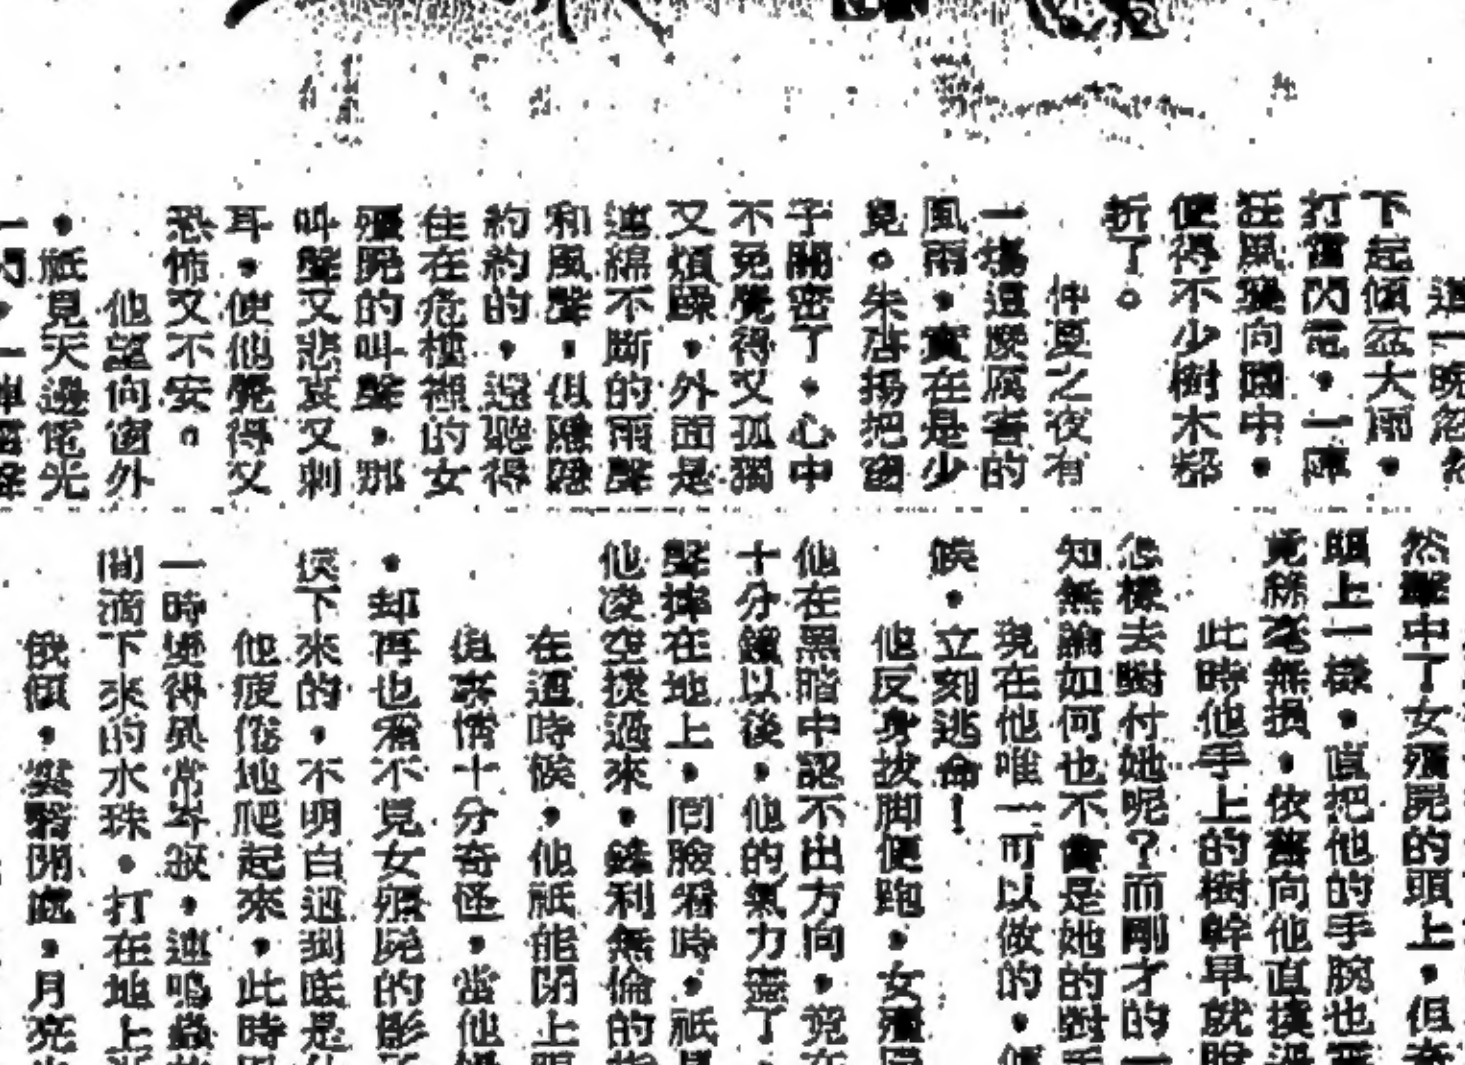 這一晚忽然
下起傾盆大雨，
打雷閃電，一陣
狂風襲向園中，
使得不少樹木都
折了。
仲夏之夜有
一場這麼厲害的
風雨，實在是少
見。朱啓揚把窗
子關密了，心中
不免覺得又孤獨
又煩躁，外面是
連綿不斷的雨聲
和風聲，但隱隱
約約的，還聽得
住在危樓裡的女
殭屍的叫聲，那
叫聲又悲哀又刺
耳，使他覺得又
恐怖又不安。
他望向窗外
，祇見天邊電光
一閃，一陣雷聲
然擊中了女殭屍的頭上，但奇
腦上一樣，直把他的手腕也
竟絲毫無損，依舊向他直撲過
此時他手上的樹幹早就脫
怎樣去對付她呢？而剛才的一
知無論如何也不會是她的對手
現在他唯一可以做的，便
候，立刻逃命！
他反身拔脚便跑，女殭屍
他在黑暗中認不出方向，竟在
十分鐘以後，他的氣力盡了，
聲摔在地上，回臉看時，祇見
他凌空撲過來，鋒利無倫的指
在這時候，他祇能閉上眼
但事情十分奇怪，當他
，却再也看不見女殭屍的影子
撲下來的，不明白這到底是什
他疲倦地爬起來，此時
一時變得異常岑寂，連鳴蟲
間滴下來的水珠，打在地上
俄傾，雲翳開處，月亮